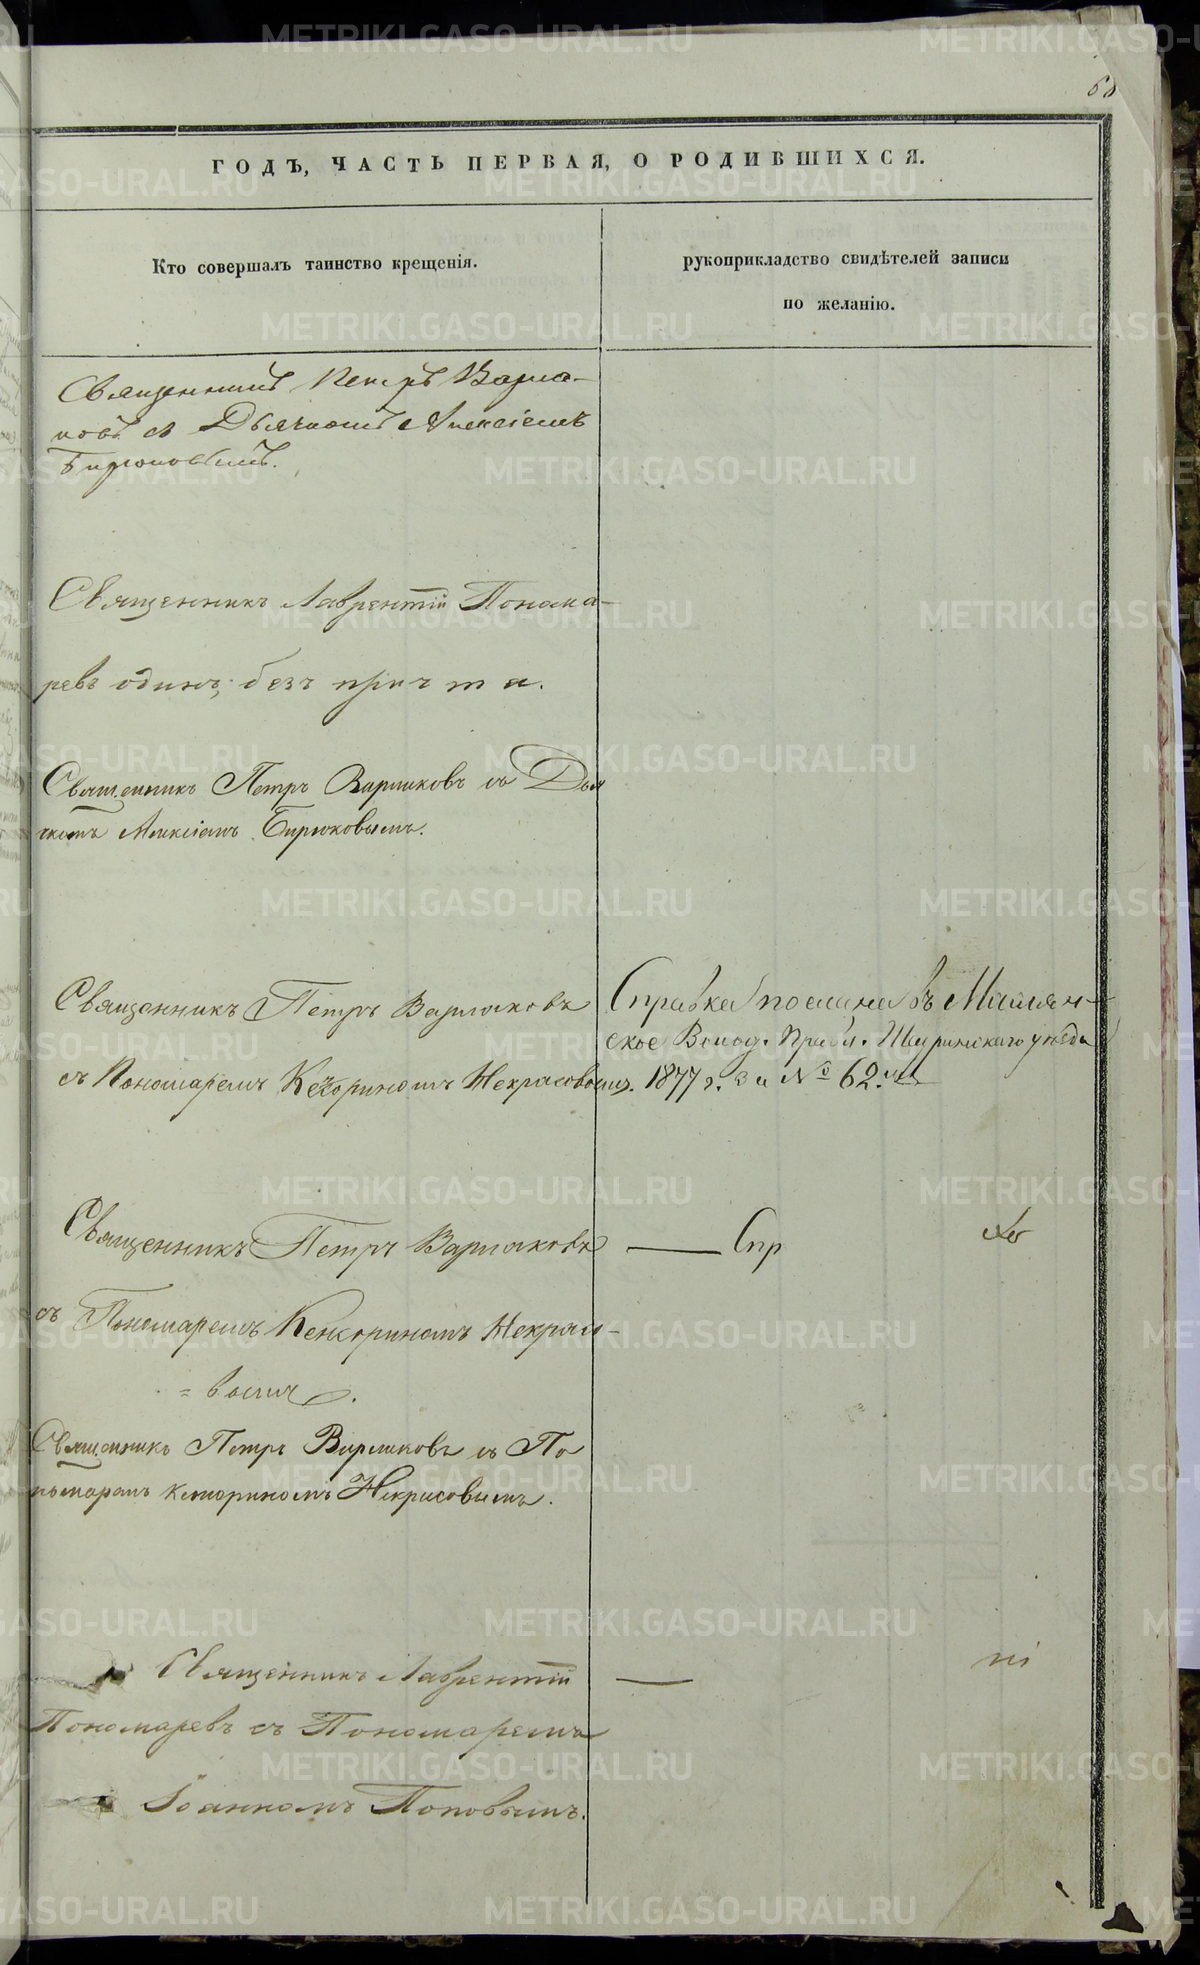 68
ГОДЪ, ЧАСТЬ ПЕРВАЯ, О РОДИВШИХСЯ.
Кто совершалъ таинство крещенія.
рукоприкладство свидѣтелей записи
по желанію.
Священникъ Петръ Варла-
ковъ съ Дьячкомъ Алексіемъ
Бирюковымъ.
Священникъ Лаврентій Понома-
ревъ одинъ, безъ причта.
Священникъ Петръ Варлаковъ съ Дья
чкомъ Алексіемъ Бирюковымъ.
Священникъ Петръ Варлаковъ
съ Пономаремъ Кенсориномъ Некрасовымъ.
Справка послана въ
ское Волод. Правл. Шадринскаго уѣзда
1877 г. за № 62.
Священникъ Петръ Варлаковъ
съ Пономаремъ Кенсориномъ Некрасо-
=вымъ.
Спр
Священникъ Петръ Варлаковъ съ По
номаремъ Кенсориномъ Некрасовымъ.
Священникъ Лаврентій
Пономаревъ съ Пономаремъ
Іоанномъ Поповымъ.
METRIKI.GASO-URAL.RU